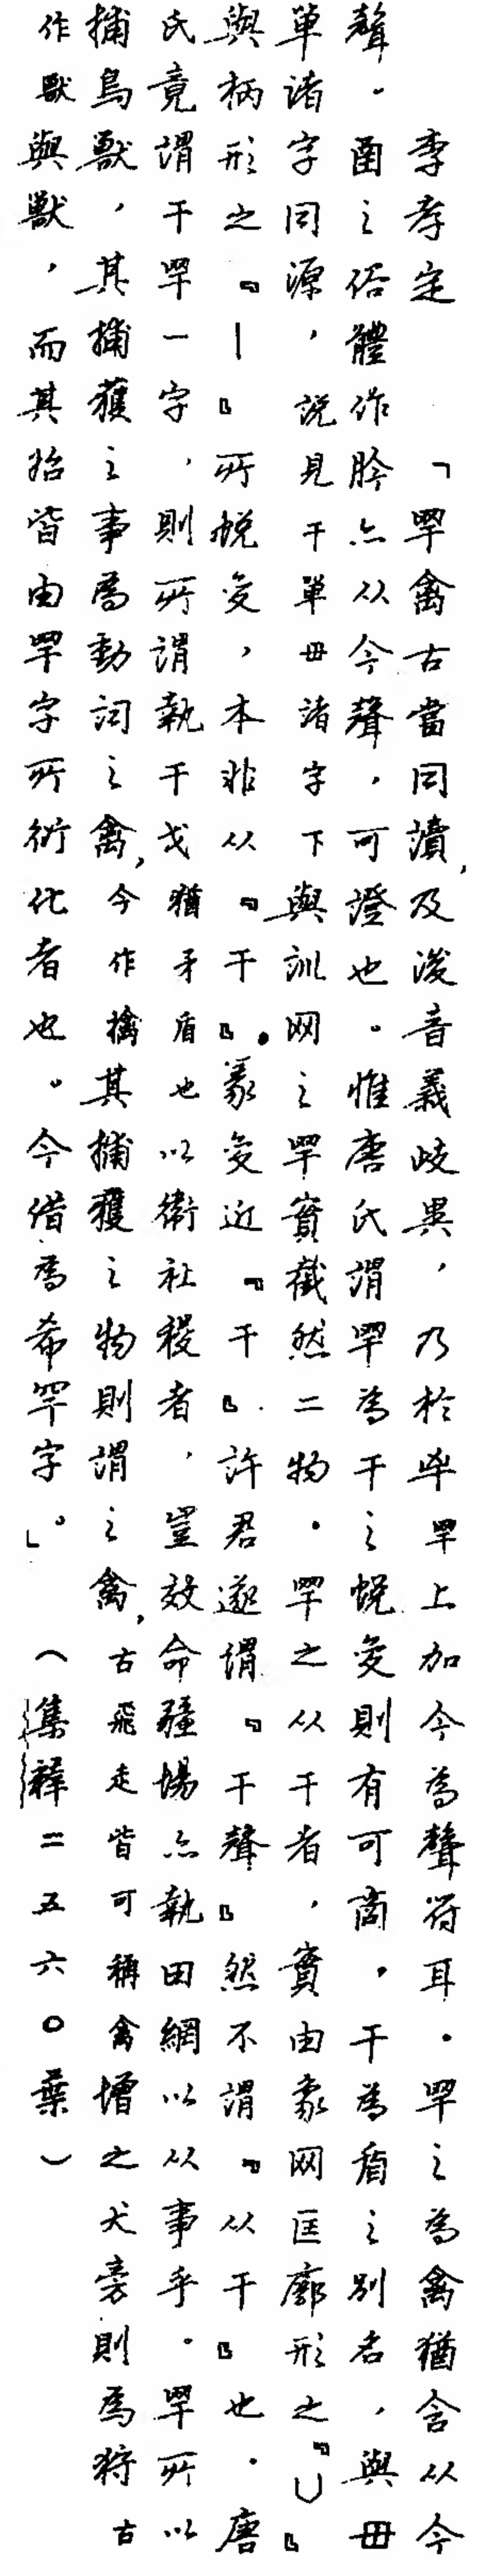 李孝定　「罕禽古當同讀，及後音義歧異，乃於𢍰罕上加今為聲符耳。罕之為禽猶含从今
聲。圅之俗體作肣亦从今聲，可證也。惟唐氏謂罕為干之蛻變則有可商，干為盾之別名，與毌
單諸字同源，說見干單毌諸字下與訓网之罕實截然二物。罕之从干者，實由象网匡廓形之『凵』
與柄形之『丨』所蛻變，本非从『干』。篆變近『干』許君遂謂『干聲』然不謂『从干』也。唐
氏竟謂干罕一字，則所謂執干戈猶矛盾也以衛社稷者，豈效命疆場亦執田網以从事乎。罕所以
捕鳥獸，其捕獲之事為動詞之禽，今作擒其捕獲之物則謂之禽，古飛走皆可稱禽增之犬旁則為狩古
作獸與獸，而其始皆由罕字所衍化者也。今借為希罕字」。（集釋二五六〇葉）